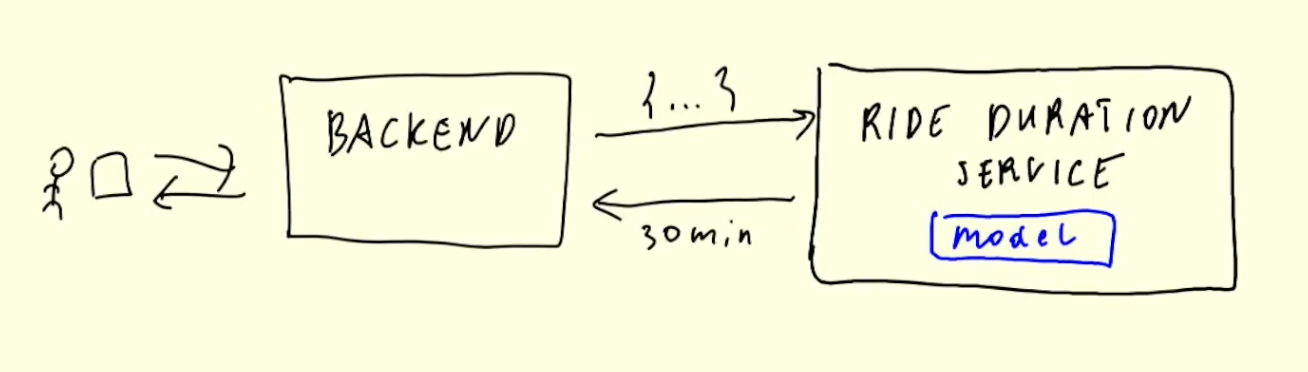 BACKEND
{...}
30min
RIDE DURATION
SERVICE
model